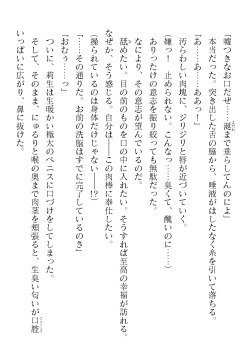 「嘘つきなお口だぜ……涎まで垂らしてんのによ」
本当だった。突き出した舌の脇から、唾液がはしたなく糸を引いて落ちる。
「あ……あ……あああっ！」
汚らわしい肉塊に、ジリジリと唇が近づいていく。
嫌っ！　止められない。こんな、こんなっ……臭くて、醜いのに……
ありったけの意志を振り絞っても無駄だった。
なにより、その意志が望んでいるのだ。
舐めたい。目の前のものを口の中に入れたい。そうすれば至高の幸福が訪れる。
なぜか、そう感じる。自分は――この肉棒に奉仕したい。
（操られているのは身体だけじゃない――!?）
「……その通りだ、お前の洗脳はすでに完了しているのさ」
「おむぅ……っ」
ついに、莉生は生暖かい極太のペニスに口づけをしてしまった。
そして、そのまま、にゅるりと喉の奥まで肉茎を頬張ると、生臭い匂いが口腔
いっぱいに広がり、鼻に抜けた。